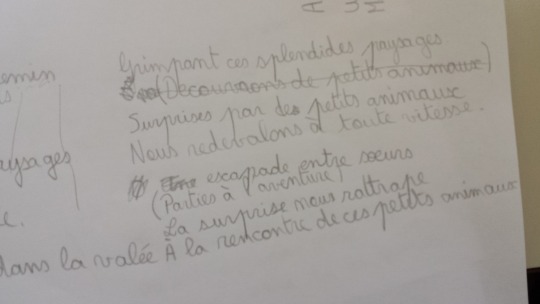 emin
Grimpant ces splendides paysages
(Découvrons de petits animaux)
Surprises par des petits animaux
aysages Nous redevalons à toute vitesse.
escapade entre sœurs
(Parties à l'aventure)
e. La surprise nous rattrape
dans la valée À la rencontre de ces petits animaux